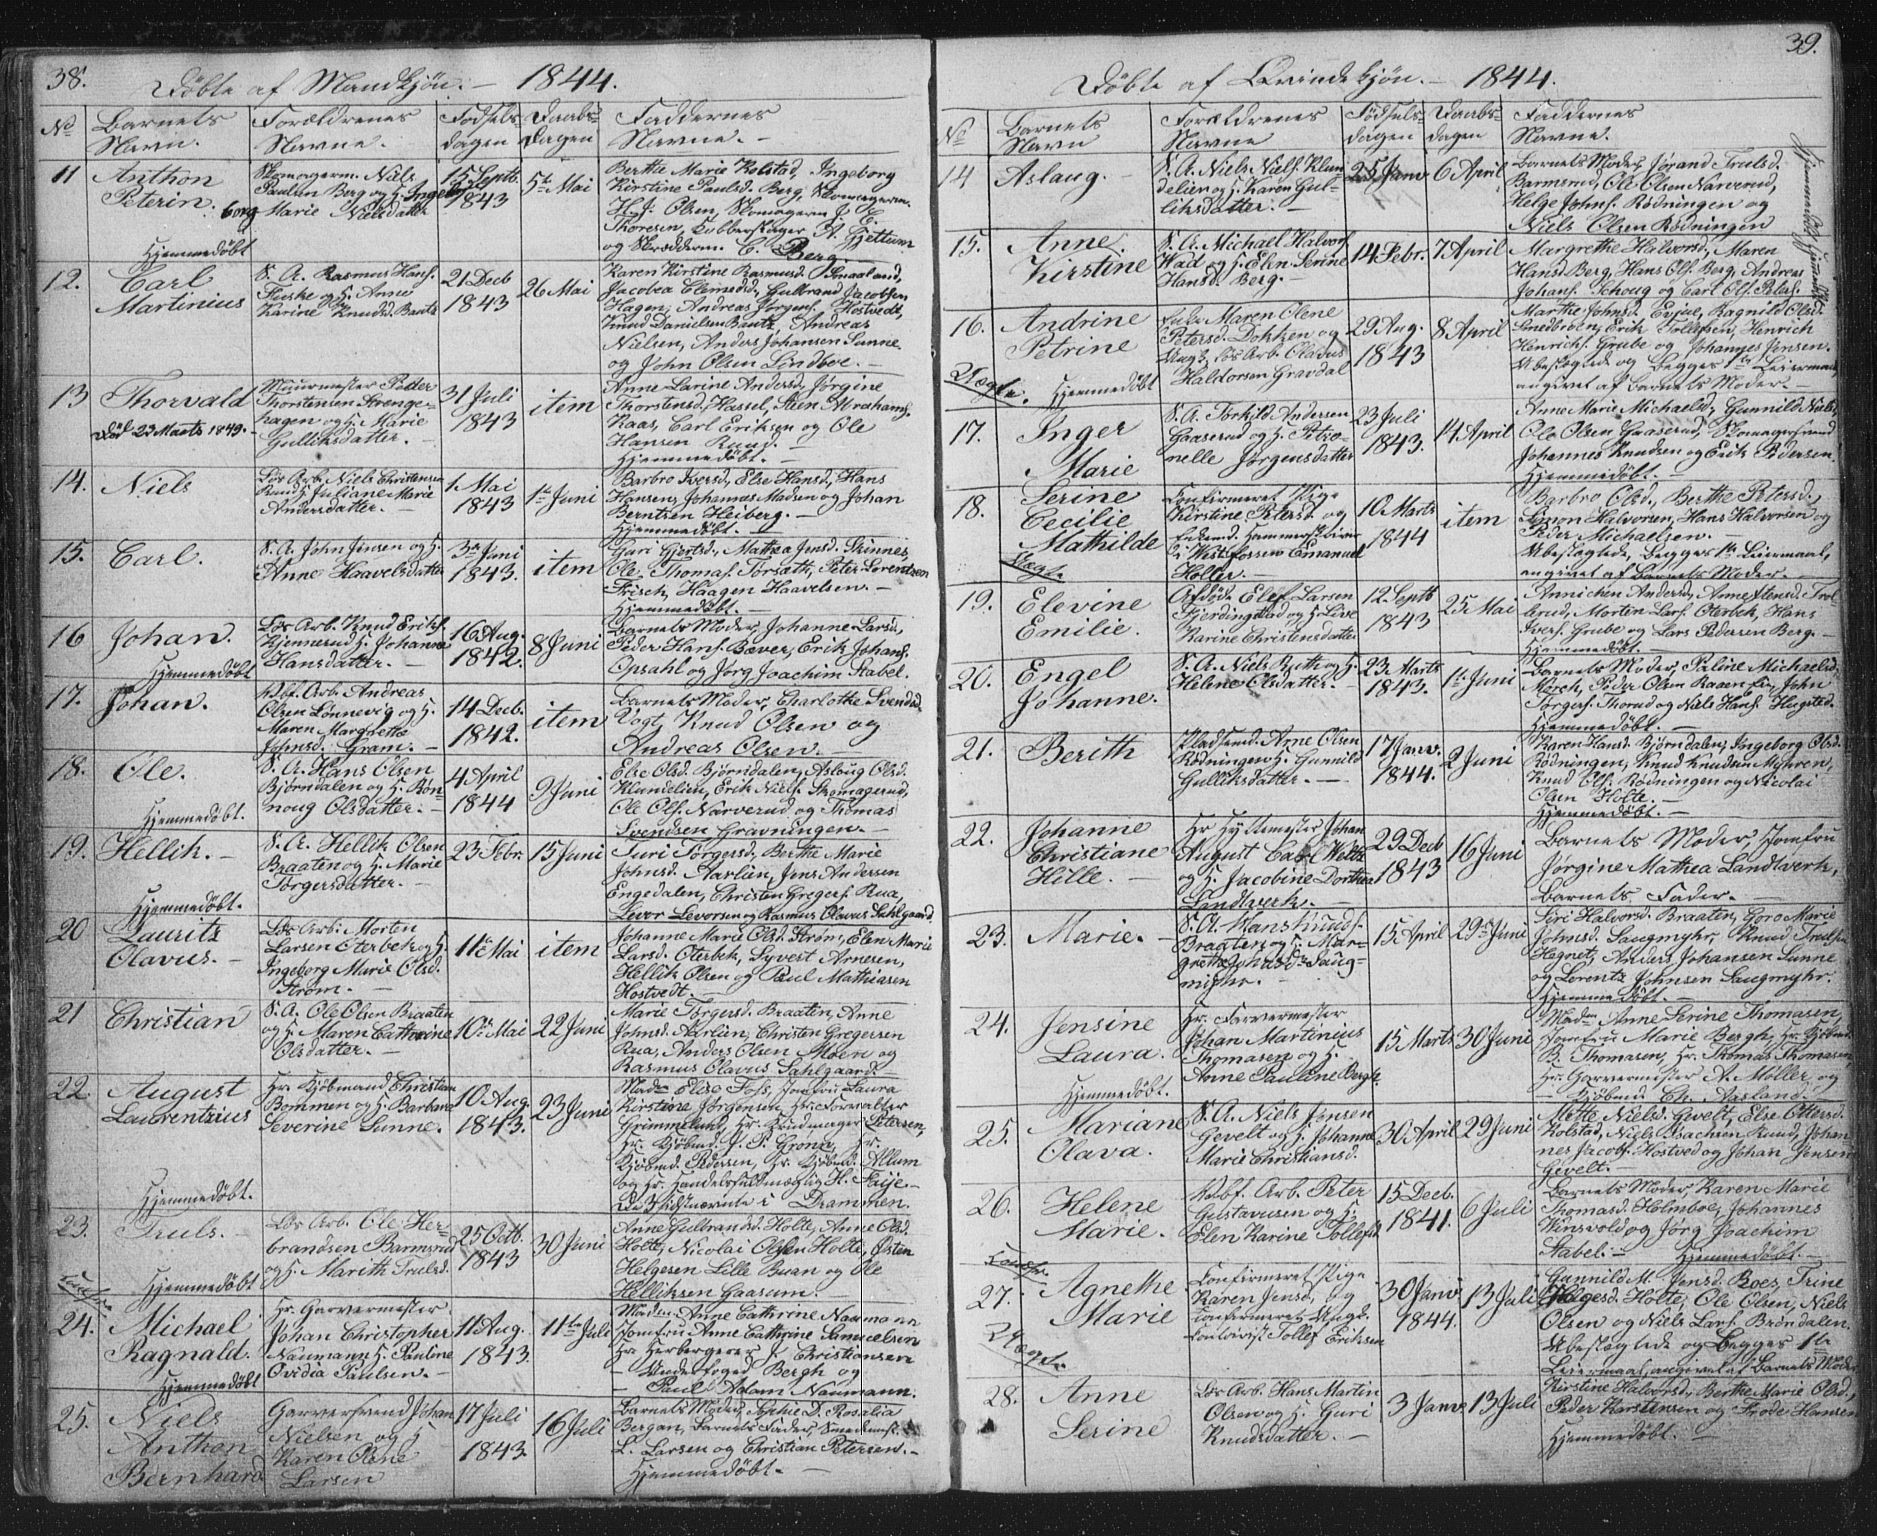 38.
Döbte af Mandkjön. — 1844.
No
Barnets
Navn.
Forældrenes
Navne.
Födsels-
dagen
Daabs-
dagen
Faddernes
Navne. —
11
Anthon
Peterin.
Hjemmedöbt
Skomagerm. Niels
Paulsen Berg og H. Ingeborg
Marie Nielsdatter
15 Septb.
1843
5te Mai
Berthe Marie Kolstad, Ingeborg
Kirstine Paulsd. Berg, Skomagerm.
H. J. Olsen, Skomagerm J. C.
Thoresen, Kobberslager A. Gjettum
og Skrædderm. C. Berg.
12.
Carl
Martinius
S. A. Rasmus Hans.
Fiske og H. Anne
Karine Knudsd. Bautz
21 Decb
1843
26 Mai
Karen Kirstine Rasmusd. Smaaland,
Jacobea Clemetsd, Gulbrand Jacobsen
Hagen, Andreas Jörgens. Hostvedt,
Knud Danielsen Bautz, Andreas
Nielsen, Anders Johansen Sunne
og John Olsen Lindboe. —
13
Thorvald
Död 23 Marts 1849.
Muurmester Peder
Thorstensen Strenge-
hagen og H. Marie
Gulliksdatter. —
31 Juli
1843
item
Anne Larine Andersd, Jörgine
Thorstensd. Hassel, Steen Abrahams.
Kaas, Carl Eriksen og Ole
Hansen Ruud. —
Hjemmedöbt. —
14.
Niels
Lös Arb. Niels Christensen
Ruud H. Juliane Marie
Andersdatter. —
1 Mai
1843
1te Juni
Barbro Iversd, Else Hansd, Hans
Hansen, Johannes Madsen og Johan
Berntsen Heiberg. —
Hjemmedöbt. —
15.
Carl.
S. A. John Jensen og H.
Anne Haavelsdatter
3die Juni
1843.
item
Guri Gjertsd, Mathea Jensd. Skinnes
Ole Thomas. Torsæth, Peter Lorentzen
Frisch, Haagen Haavelsen. —
Hjemmedöbt. —
16
Johan.
Hjemmedöbt
Lös Arb. Knud Eriks.
Kjennerud H. Johanne
Hansdatter. —
16 Aug.
1842.
8 Juni
Barnets Moder, Johanne Larsd,
Peder Hans. Bæver, Erik Johans.
Opsahl og Jörg Joachim Stabel.
17.
Johan.
Vbf. Arb. Andreas
Olsen Lönnevig og H.
Maren Margrethe
Johnsd. Gram. —
14 Decb.
1842.
item
Barnets Moder, Charlotte Svendsd.
Vogt, Knud Olsen og
Andreas Olsen. —
18.
Ole.
Hjemmedöbt.
S. A. Hans Olsen
Björndalen og H. Rön-
noug Olsdatter. —
4 April
1844
9 Juni
Else Olsd. Björndalen, Aslaug Olsd.
Klundelien, Erik Niels. Skomagerud,
Ole Ols. Narverud og Thomas
Svendsen Gravningen. —
19.
Hellik. —
Hjemmedöbt.
S. A. Hellik Olsen
Braaten og H. Marie
Torgersdatter. —
23 Febr.
15 Juni
Turi Torgersd, Berthe Marie
Johnsd. Aarlien, Jens Andersen
Engedalen, Christen Gregers. Rua,
Levor Levorsen og Rasmus Olavus Sahlgaard
20
Lauritz
Olavus. —
Lös Arb. Morten
Larsen Oterbek og H.
Ingeborg Marie Olsd.
Ström. —
11te Mai
item
Johanne Marie Olsd. Ström, Elen Marie
Larsd. Oterbek, Syvert Arnesen,
Hellik Olsen og Paul Mathiasen
Hostvedt. —
21
Christian
S. A. Ole Olsen Braaten
og H. Maren Cathrine
Olsdatter. —
10de Mai
22 Juni
Marie Torgersd. Braaten, Anne
Johnsd. Aarlien, Christen Gregersen
Rua, Anders Olsen Moen og
Rasmus Olavus Sahlgaard
22.
August
Laurentzius
Hjemmedöbt.
Hr. Kjöbmand Christian
Bommen og H. Barbara
Severine Sunne. —
10 Aug.
1843.
23 Juni
Madm Else Foss, Jomfru Laura
Kirstine Jörgensen, Hr. Forvalter
Grimmelund, Hr. Bundmager Petersen,
Hr. Kjöbmd. J. P. Grong, Hr.
Kjöbmd. Pedersen, Hr. Kjöbmd. Allum
og Hr. Handelsfuldmægtig H. Faije. —
De 3 sidstnævnte i Drammen.
23.
Truls. —
Hjemmedöbt
Lös Arb. Ole Her-
brandsen Barmsrud
og H. Marith Trulsd.
25 Octb.
1843
30 Juni
Anne Gulbrandsd. Holte, Anne Olsd.
Holte, Nicolai Olsen Holte, Östen
Helgesen Lille Buan og Ole
Helliksen Gaasum. —
24.
Michael
Ragnald.
Hjemmedöbt
Hr. Garvermester
Johan Christopher
Naumann H. Pauline
Ovidia Paulsen. —
11 Aug.
1843.
11te Juli
Madm Anne Cathrine Naumann
Jomfru Anne Cathrine Samuelsen
Hr Herbergerer J. Christiansen
— Underfoged Bergh og
— Paul Adam Naumann.
25.
Niels
Anthon
Bernhard
Garversvend Johan
Nielsen og H.
Karen Olene
Larsen
17 Juli
1843.
16 Juli
Barnets Moder, Sophie D. Rosalia
Bergan, Barnets Fader,
L. Larsen og Christian Petersen. —
Hjemmedöbt. —
39.
Döbte af Qvindekjön. — 1844.
No
Barnets
Navn
Forældrenes
Navne
Födsels-
dagen
Daabs-
dagen
Faddernes
Navne.
14
Aslaug. —
S. A. Niels Niels. Klun
delien og H. Karen Gul-
liksdatter. —
25 Janv
6 April
Barnets Moder, Jörand Trulsd.
Barmsrud, Ole Olsen Narverud,
Helge Johns. Rödningen og
Niels Olsen Rödningen
15.
Anne
Kirstine
S. A. Michael Halvors.
Wad og H. Elen Serine
Hansd. Berg.
14 Febr.
7 April
Margrethe Halvorsd, Maren
Hansd Berg, Hans Ols. Berg, Andreas
Johans. Schoug og Carl Ols. Petas.
16.
Andrine
Petrine
Uægte.
Hjemmedöbt
Enke Maren Olene
Petersd. Dokken og
Ungk. lös Arb. Olavus
Haldorsen Gravdal
29 Aug.
1843
8 April
Marthe Johnsd. Evjue, Ragnild Olsd
Snedbröen, Erik Tollefsen, Henrich
Henrichs. Grube og Johannes Jensen.
Ubeslægtede og Begges 1te Leiermaal
angivet af Barnets Moder. —
17.
Inger
Marie
S. A. Torkild Andersen
Gaaserud og H. Petro-
nelle Jörgensdatter
23 Juli
1843.
14 April
Anne Marie Michaelsd, Gunnild Nielsd,
Ole Olsen Gaaserud, Skomagersvend
Johannes Knudsen og Erik Pedersen.
Hjemmedöbt. —
18.
Serine
Cecilie
Mathilde
Uægte.
Confirmeret Pige
Kirstine Petersd. og
Enkemd. Hammersk
i Westfossen Emanuel
Holler. —
10 Marts
1844
item
Barbro Olsd., Berthe Petersd.
Simon Halvorsen, Hans Halvorsen og
Peder Michaelsen. —
Ubeslægtede, Begges 1te Leiermaal,
angivet af Barnets Moder. —
19.
Elevine
Emilie.
Afdöde Elef Larsen
Fjerdingstad og H. Live
Karine Christensdatter
12 Septb
1843
25 Mai
Annichen Andersd, Anne Jensd. Trol-
lerud, Morten Lars. Oterbek, Hans
Ivers. Grube og Lars Pedersen Berg. —
Hjemmedöbt. —
20.
Engel
Johanne.
S. A. Niels Ruth og H.
Helene Olsdatter. —
23 Marts
1843.
1te Juni
Barnets Moder, Paline Michaelsd
Mörch, Peder Olsen Raaen, John
Torgers. Thorud og Niels Hans. Hugsted.
Hjemmedöbt. —
21.
Berith
Pladsemd. Arne Olsen
Rödningen H. Gunnild
Gulliksdatter. —
17 Janv.
1844.
2 Juni
Karen Hansd. Björndalen, Ingeborg Olsd.
Rödningen, Knud Knudsen Mehren,
Knud Ols. Rödningen og Nicolai
Olsen Holte. —
Hjemmedöbt. —
22.
Johanne
Christiane
Hille. —
Hr Hyttemester Johan
August Carl Weltz
og H. Jacobine Dorthea
Landtverk. —
29 Decb
1843
16 Juni
Barnets Moder, Jomfru
Jörgine Mathea Landtverk,
Barnets Fader. —
23.
Marie. —
S. A. Hans Knuds.
Braaten og H. Mar-
grethe Johnsdr Saug-
myhr. —
15 April
29de Juni
Siri Halvorsd. Braaten, Goro Marie
Johnsd. Saugmyhr, Knud Trulsen
Hegnet, Anders Johansen Sunne
og Lorentz Johnsen Saugmyhr.
Hjemmedöbt. —
24.
Jensine
Laura.
Hjemmedöbt.
Hr. Farvermester
Johan Martinius
Thomasen og H.
Anne Pauline Bergh
15 Marts
30 Juni
Madm Anne Serine Thomasen,
Jomfru Marie Bergh, Hr. Kjöbmd.
B. Thomasen, Hr. Thomas Thomasen,
Hr. Garvermester A. Möller og
— Kjöbmd. Ch. Aasland. —
25.
Mariane
Olava.
S. A. Niels Jensen
Gevelt og H. Johanne
Marie Christiansd.
30 April
29 Juni
Mette Nielsd. Gevelt, Else Ottersd.
Kolstad, Niels Isachsen Ruud, Johan
nes Jacobs. Hostved og Johan Jensen
Gevelt. —
26.
Helene
Marie.
Vbf. Arb. Peter
Gustavusen og H.
Elen Karine Tollefsd
15 Decb.
1841.
6 Juli
Barnets Moder, Karen Marie
Thomasd. Holmboe, Johannes
Winsvold og Jörg Joachim
Stabel. —
Hjemmedöbt —
27.
Agnethe
Marie
Uægte.
Confirmeret Pige
Karen Jensd, og
confirmeret Ungk.
Tollef Eriksen
30 Janv
1844.
13 Juli
Gunnild M. Jensd. Boes, Trine
Helgesd. Holte, Ole Olsen, Niels
Olsen og Niels Lars. Bröndalen.
Ubeslægtede og Begges 1te
Leiermaal, angivet af Barnets Moder
28.
Anne
Serine
Lös Arb. Hans Martin
Olsen og H. Guri
Knudsdatter. —
3 Janv
13 Juli
Kirstine Halvorsd, Berthe Marie Olsd,
Peder Karstensen og Frode Hansen
Hjemmedöbt. —